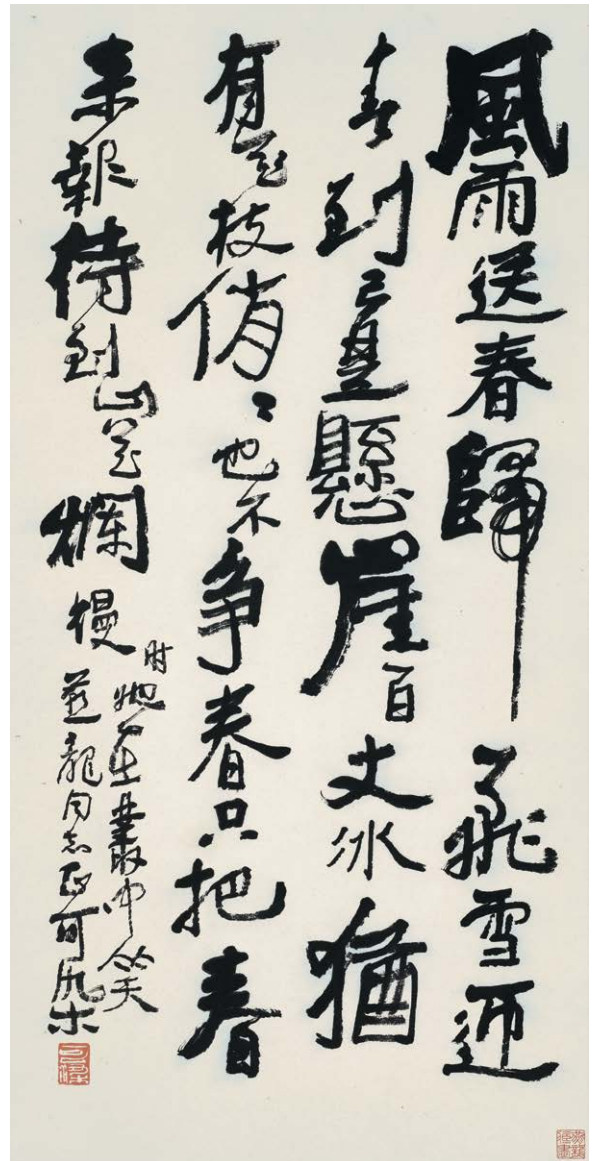 風雨送春歸飛雪迎
春到已是懸崖百丈冰猶
有花枝俏〻也不争春只把春
来報待到山花爛熳
时她在叢中笑
龍同志正可染